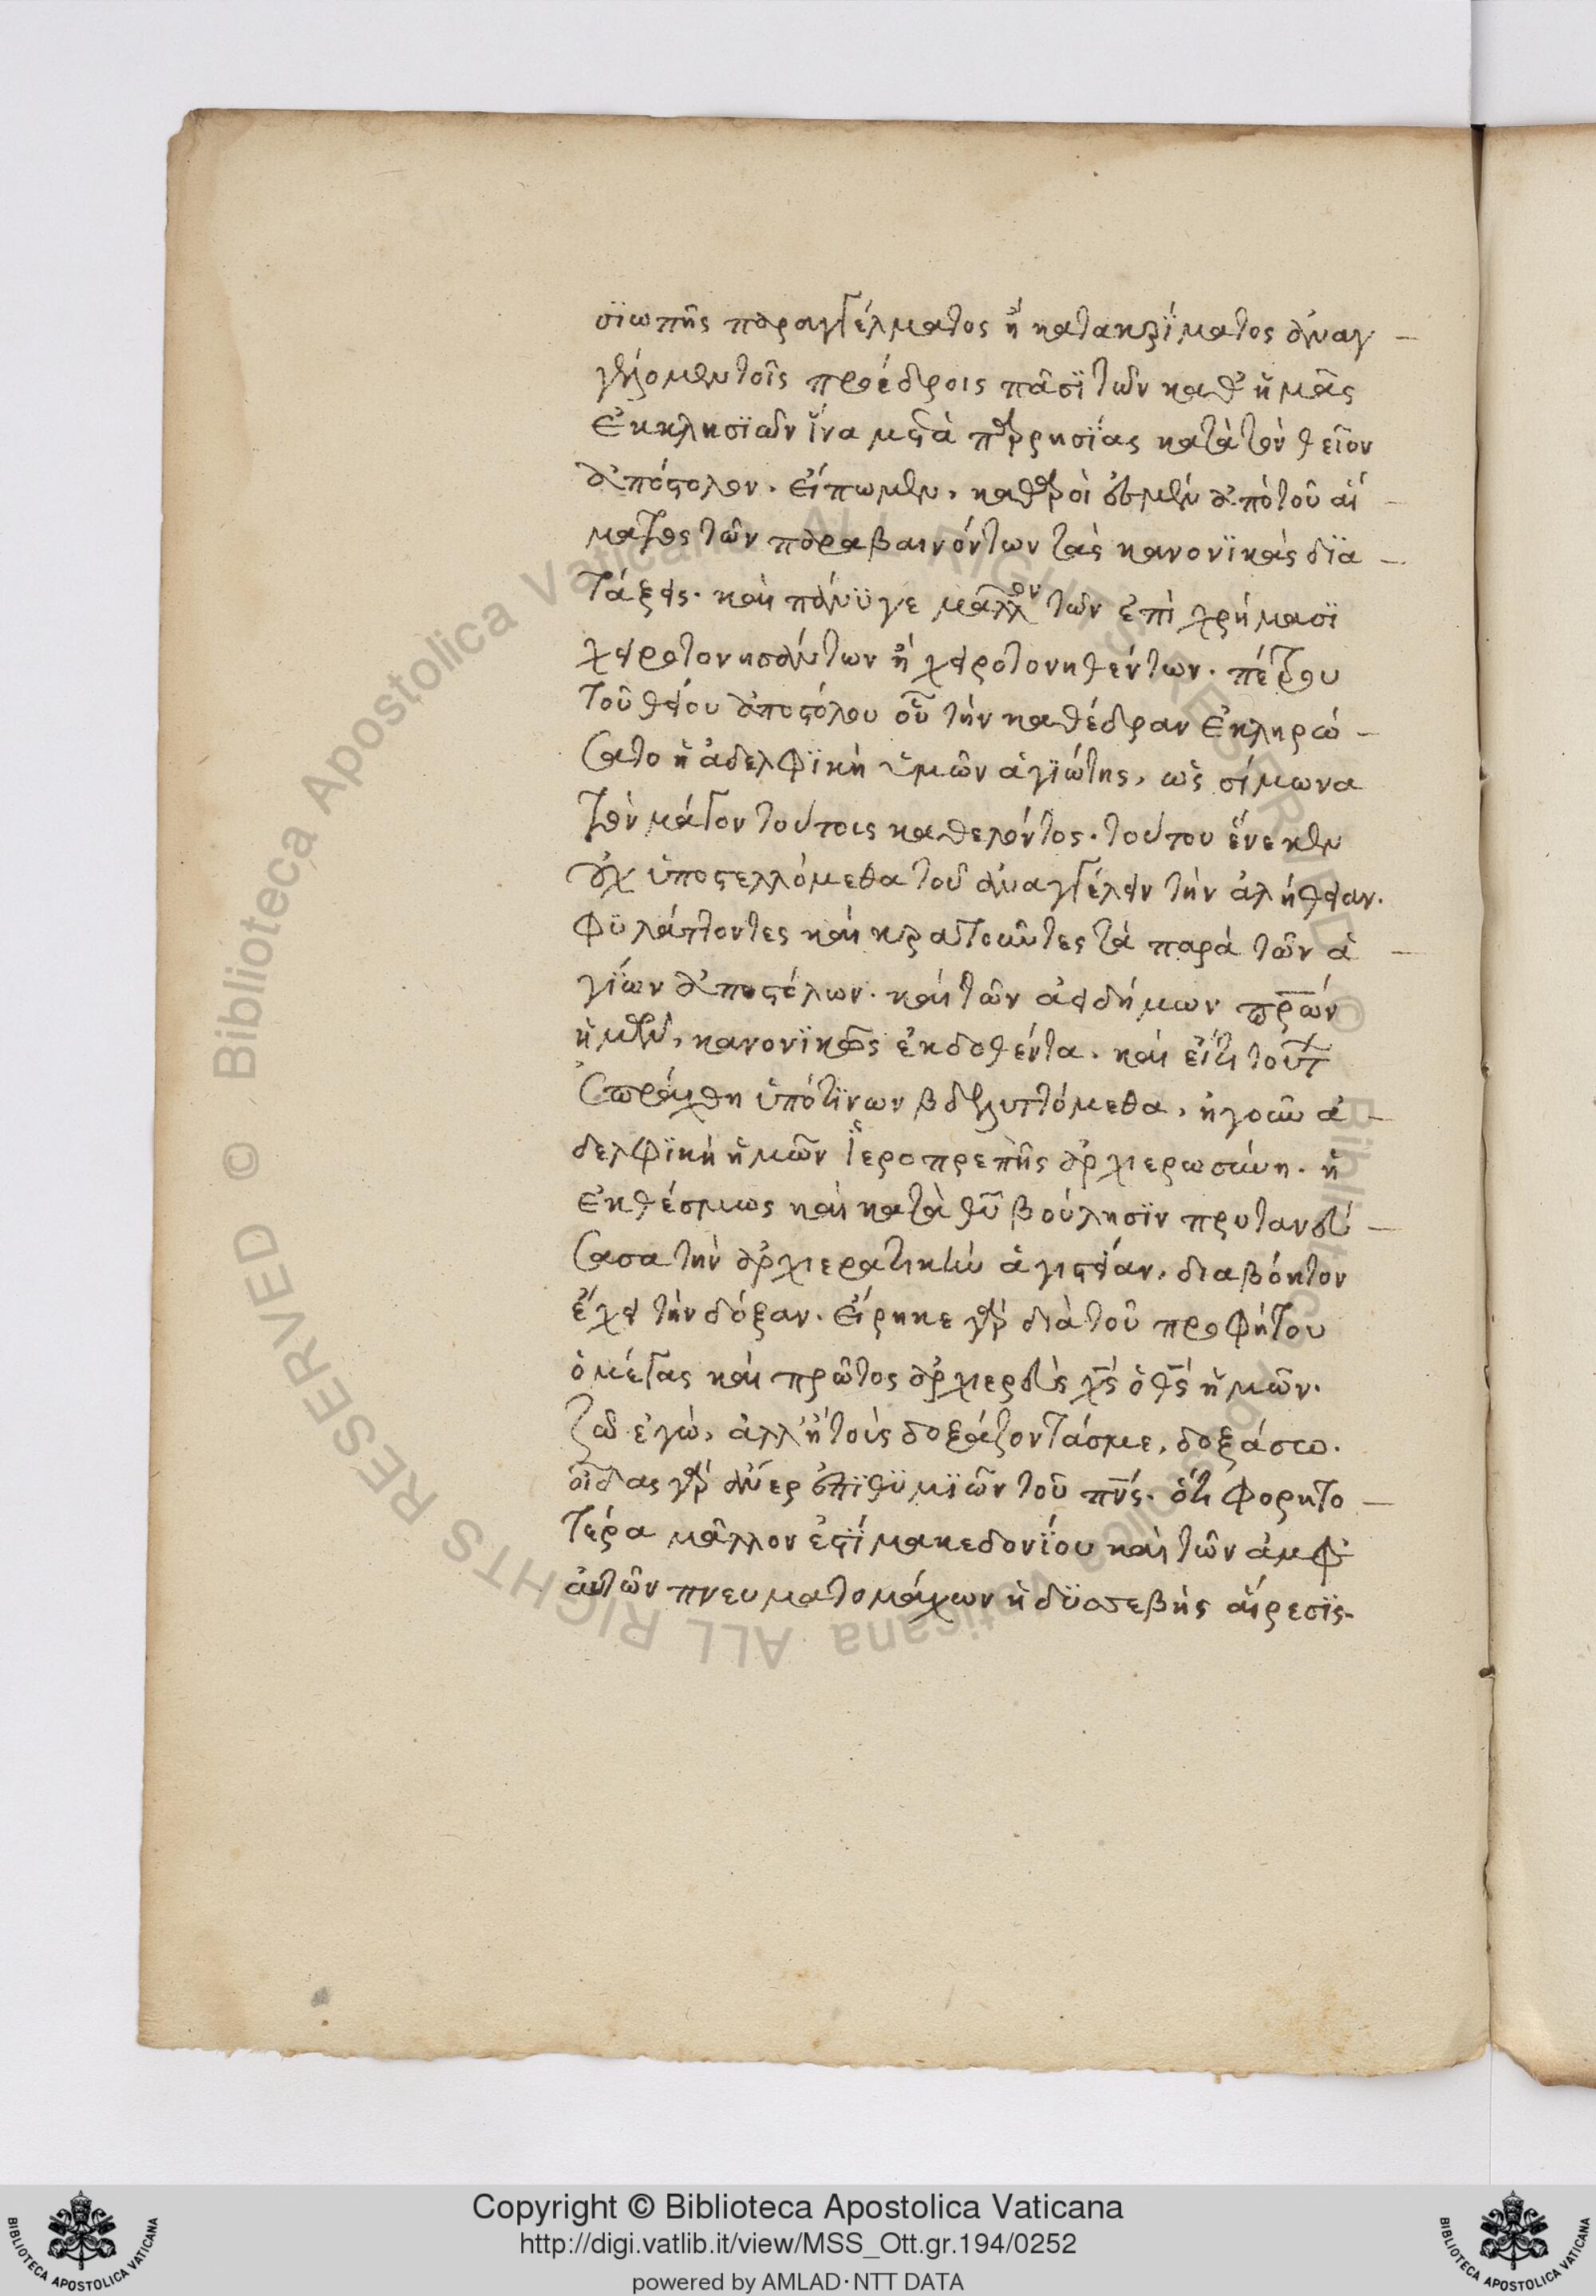 σϊωπῆς παραγγέλματος ἢ κατακρϊματος ἀναγ
γέλομεν τοῖς προέδροις πᾶσϊ τῶν καθ ἡμᾶς
ἐκκλησϊῶν ἵνα μετὰ παρρησϊας κατὰ τὸν θεῖον
ἀπόστολον. εἴπωμεν, καθαροὶ ἐσμὲν ἀπὸ τοῦ αἵ
ματος τῶν παραβαινόντων τὰς κανονϊκὰς δϊα
τάξεις. καὶ πάνϋ γε μᾶλλον τῶν ἐπὶ χρήμασϊ
χειροτονησάντων ἢ χειροτονηθέντων. πέτρου
τοῦ θείου ἀποστόλου οὗ τὴν καθέδραν ἐκληρώ
σατο ἡ ἀδελφϊκὴ ὑμῶν ἁγϊώτης, ὡς σίμωνα
τὸν μάγον τούτοις καθελόντος. τούτου ἕνεκεν
οὐχ ὑποστελλόμεθα τοῦ ἀναγγέλειν τὴν ἀλήθειαν.
φϋλάττοντες καὶ κρατοῦντες τὰ παρὰ τῶν ἁ
γϊων ἀποστόλων. καὶ τῶν ἀειδήμων πρων
ἡμῶν, κανονϊκῶς ἐκδοθέντα. καὶ εἴ τι τούτων
ἐπράχθη ὑπό τϊνων βδελυττόμεθα, ἡ γοῦν ἀ
δελφϊκὴ ἡμῶν ϊεροπρεπὴς ἀρχιερωσύνη. ἡ
ἐκθέσμως καὶ κατὰ θυ βούλησϊν πρυτανεύ
σασα τὴν ἀρχιερατικὴν ἁγιστείαν, διαβόητον
ἔχει τὴν δόξαν. εἴρηκε γὰρ διὰ τοῦ προφήτου
ὁ μέγας καὶ πρῶτος ἀρχιερεὺς χς ὁ θς ἡμῶν.
ζῶ ἐγώ, ἀλλ ἢ τοὺς δοξάζοντάσμε, δοξάσω.
οἶδας γὰρ ἄνερ ἐπϊθϋμϊῶν τοῦ πνς. ὅτι φορητο
τέρα μᾶλλον ἐστϊ μακεδονϊου καὶ τῶν ἀμφ
αὐτῶν πνευματομάχων ἡ δϋσσεβὴς αἵρεσϊς.
Copyright © Biblioteca Apostolica Vaticana
http://digi.vatlib.it/view/MSS_Ott.gr.194/0252
powered by AMLAD·NTT DATA